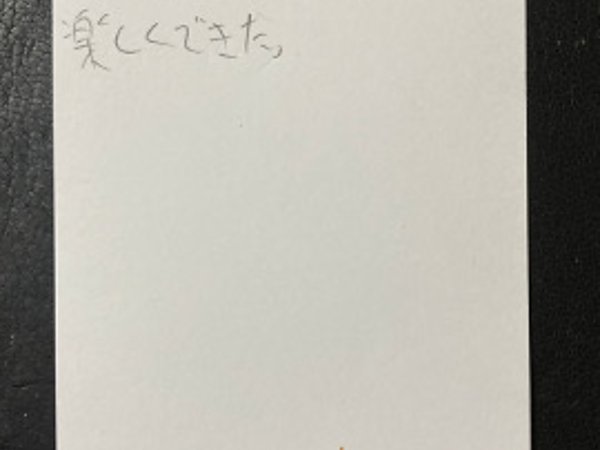 楽しくできた。